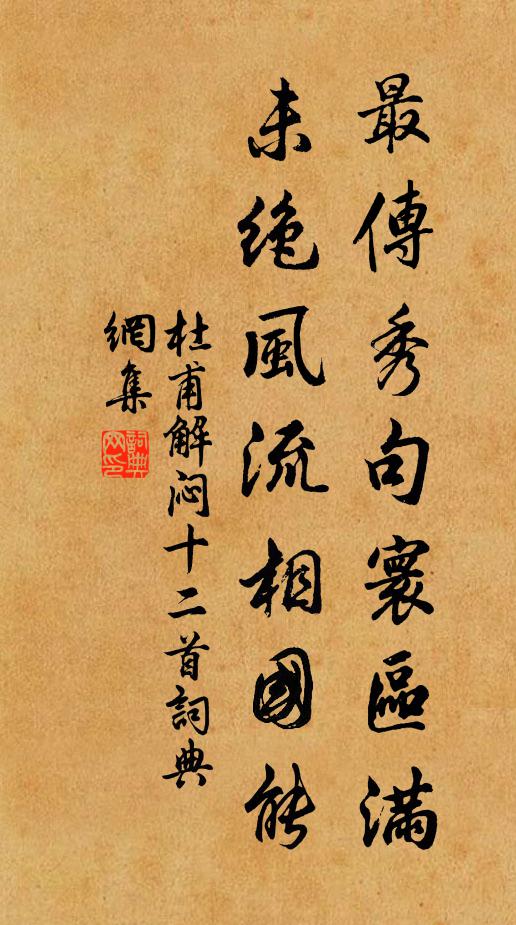 最傳秀句寰區滿
未絕風流相國能
杜甫解闷十二首詞典
網集
詞典網印